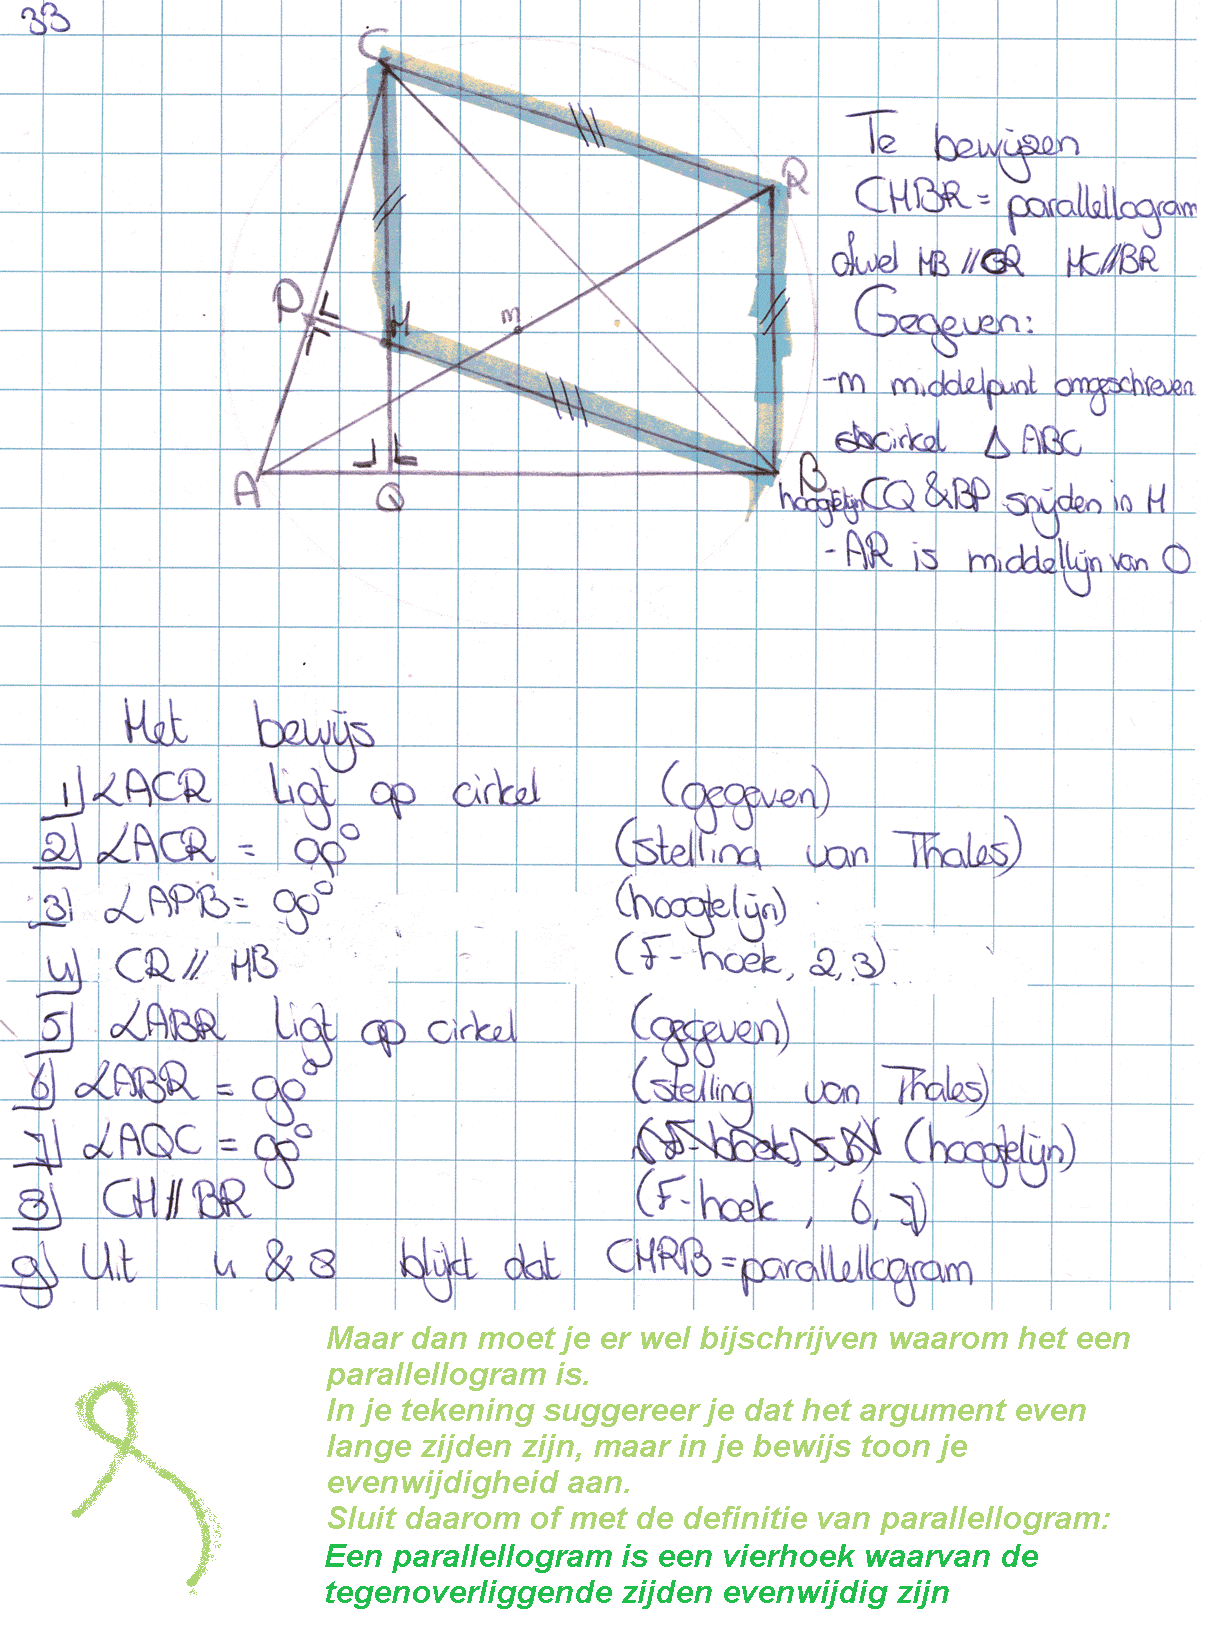 33
C
R
P
H
m
A
Q
B
Te bewijzen
CHBR = parallellogram
ofwel HB // CR HC//BR
Gegeven:
-m middelpunt omgeschreven
cirkel Δ ABC
hoogtelijn CQ & BP snijden in H
- AR is middellijn van O
Het bewijs
1) ∠ACR ligt op cirkel (gegeven)
2) ∠ACR = 90° (stelling van Thales)
3) ∠APB = 90° (hoogtelijn)
4) CR // HB (F-hoek, 2,3)
5) ∠ABR ligt op cirkel (gegeven)
6) ∠ABR = 90° (stelling van Thales)
7) ∠AQC = 90° (hoogtelijn)
8) CH // BR (F-hoek, 6,7)
9) Uit 4 & 8 blijkt dat CHRB = parallellogram
Maar dan moet je er wel bijschrijven waarom het een
parallellogram is.
In je tekening suggereer je dat het argument even
lange zijden zijn, maar in je bewijs toon je
evenwijdigheid aan.
Sluit daarom of met de definitie van parallellogram:
Een parallellogram is een vierhoek waarvan de
tegenoverliggende zijden evenwijdig zijn